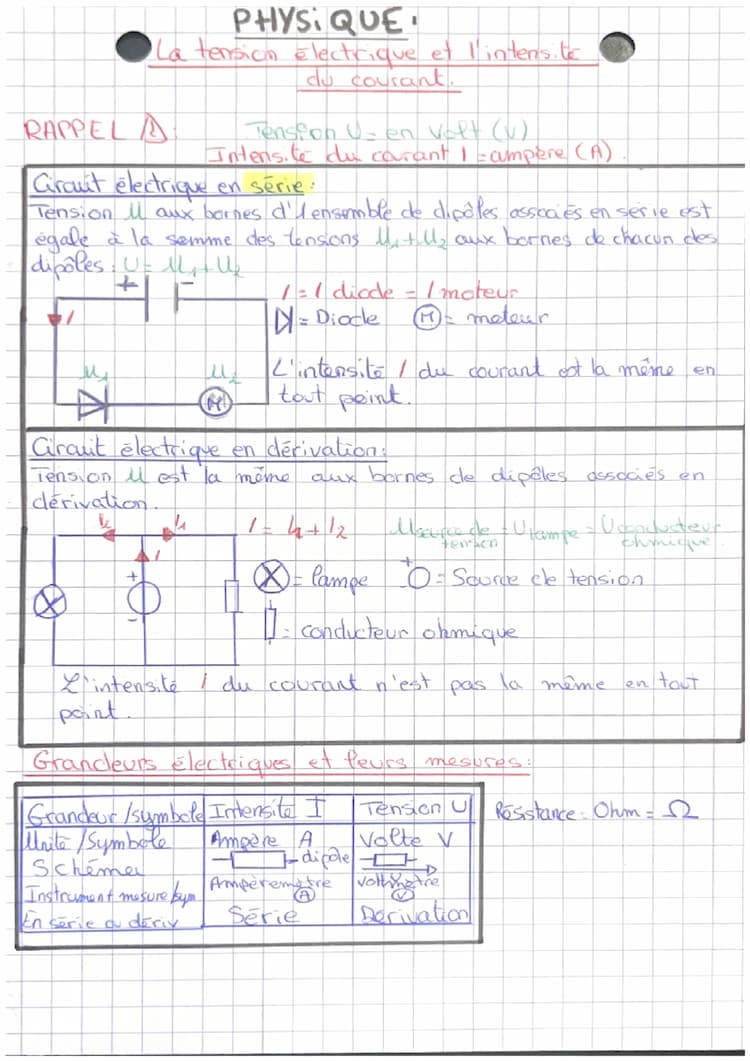 PHYSIQUE.
La tension électrique et l'intensité
du courant.
RAPPEL ⚠:
Tension U = en Volt (V)
Intensité du courant I = ampère (A).
Circuit électrique en série:
Tension U aux bornes d'1 ensemble de dipôles associés en série est
égale à la somme des tensions U1+U2 aux bornes de chacun des
dipôles: U = U1+U2
+ -
I = I diode = I moteur
I
= Diode (M) = moteur
U1 U2
L'intensité I du courant est la même en
tout point.
M
Circuit électrique en dérivation:
Tension U est la même aux bornes de dipôles associés en
dérivation.
I2 I1
I = I1+I2
Usource de tension = Ulampe = Uconducteur ohmique
I
= lampe
+ = Source de tension
+
-
= conducteur ohmique
L'intensité I du courant n'est pas la même en tout
point.
Grandeurs électriques et leurs mesures:
Grandeur/symbole Intensité I Tension U
Résistance: Ohm = Ω
Unité/Symbole Ampère A Volte V
Schéma dipôle
Instrument mesure/sym Ampèremètre A Voltmètre V
En série ou dériv Série Dérivation